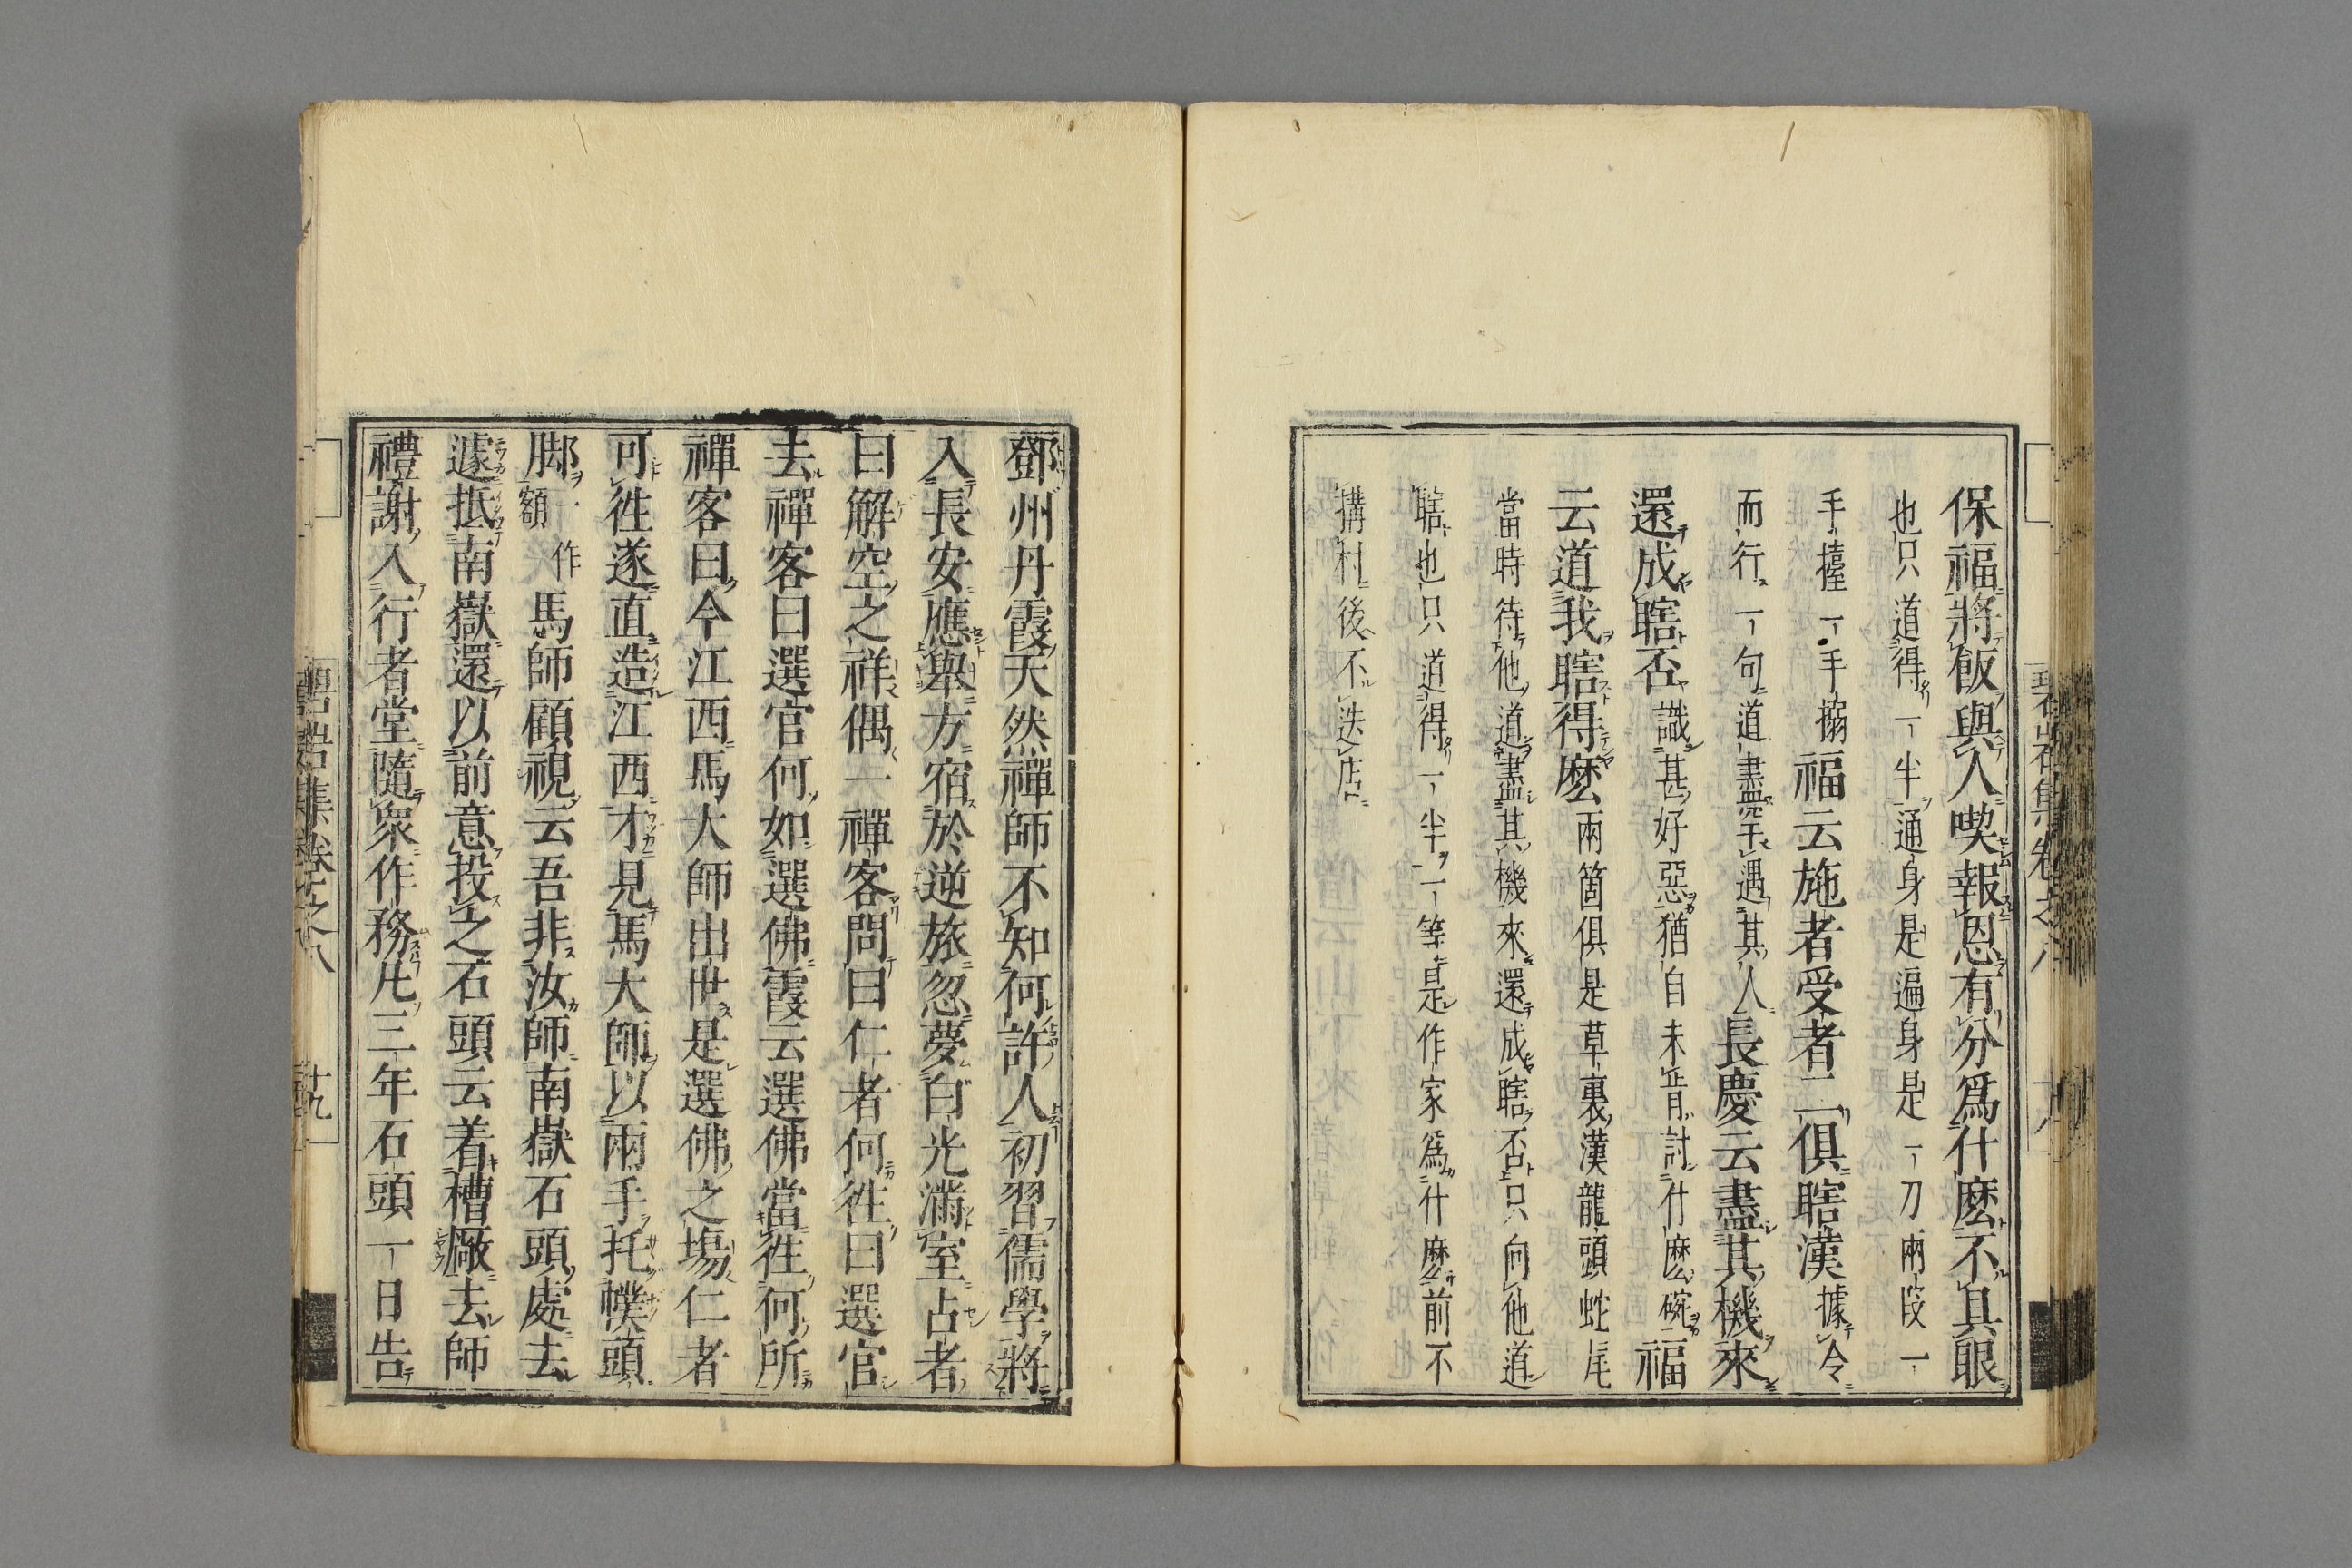 保福將飯與人喫報恩有分爲什麽不具眼
也只道得一半通身是遍身是一刀兩段一
手擡一手搦福云施者受者二俱瞎漢據令
而行一句道盡罕遇其人長慶云盡其機來
還成瞎否識甚好惡猶自未肯討什麽碗福
云道我瞎得麽兩箇俱是草裏漢龍頭蛇尾
當時待他道盡其機來還成瞎否只向他道
瞎也只道得一半一等是作家爲什麽前不
搆村後不迭店
鄧州丹霞天然禪師不知何許人初習儒學將
入長安應舉方宿於逆旅忽夢白光滿室占者
曰解空之祥偶一禪客問曰仁者何徃曰選官
去禪客曰選官何如選佛霞云選佛當徃何所
禪客曰今江西馬大師出世是選佛之塲仁者
可徃遂直造江西才見馬大師以兩手托幞頭
脚一作額馬師顧視云吾非汝師南嶽石頭處去
遽抵南嶽還以前意投之石頭云着槽厰去師
禮謝入行者堂隨衆作務凡三年石頭一日告
碧岩集卷之八
十九